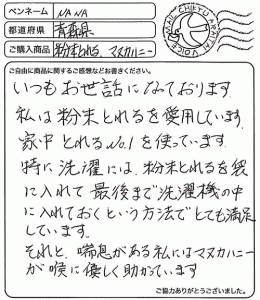 ペンネーム NANA
都道府県 青森県
ご購入商品 粉末とれる、マヌカハニー
ご自由に商品に関するご感想などお書きください。
いつもお世話になっております。
私は粉末とれるを愛用しています。
家中とれるNo.1を使っています。
特に洗濯には、粉末とれるを袋
に入れて最後まで洗濯機の中
に入れておくという方法でとても満足
しています。
それと、喘息がある私にはマヌカハニー
が喉に優しく助かっています
ご協力ありがとうございました。